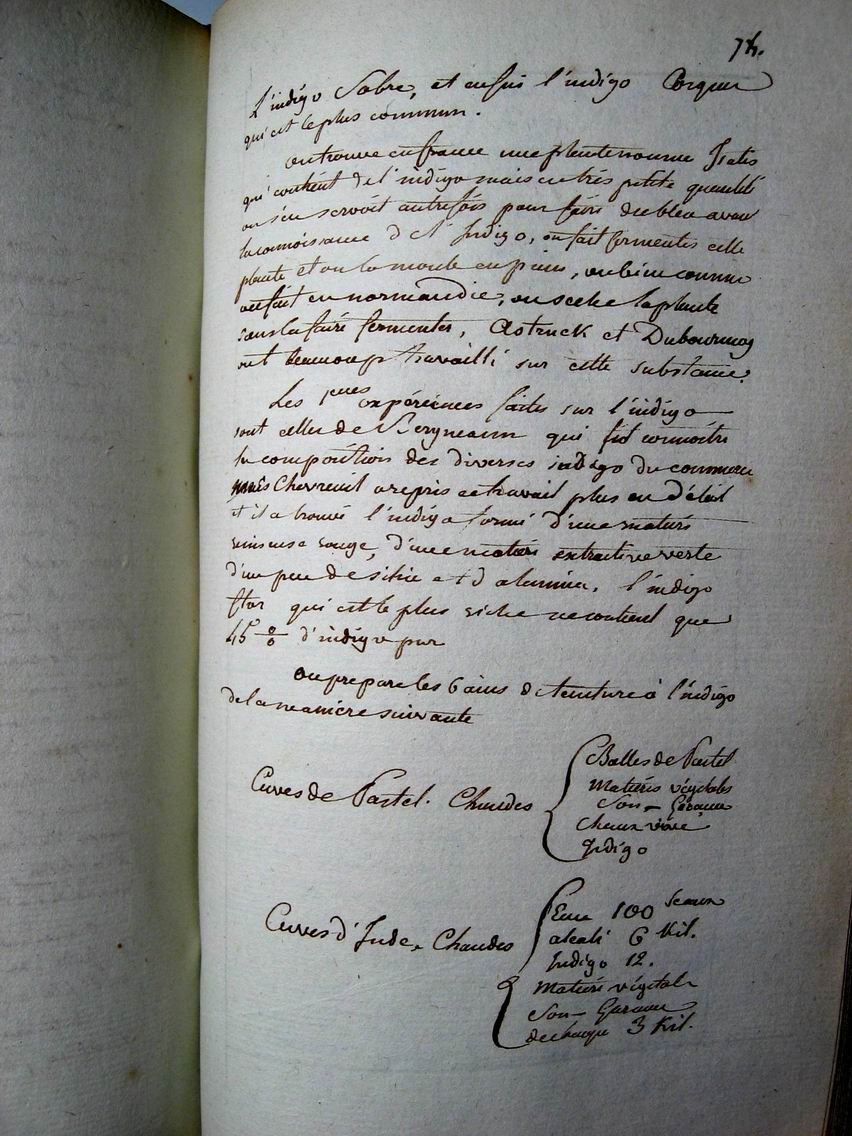 74.
L'indigo Sabre, et enfin l'indigo
qui est le plus commun.
on trouve en france une plante nommée Isatis
qui contient de l'indigo mais en très petite quantité
on s'en servoit autrefois pour faire du bleu avant
la connoissance d l'Indigo, on fait fermenter cette
plante et on la moule en pains, ou bien comme
on fait en normandie, on seche la plante
sans la faire fermenter, Astruck et Dubournay
ont beaucoup travaillé sur cette substance.
Les 1eres expériences faites sur l'indigo
sont celles de Bergmann qui fit connoitre
la composition des diverses indigo du commerce
mais Chevreuil a repris ce travail plus en détail
et il a trouvé l'indigo formé d'une matière
resineuse rouge, d'une matière extractive verte
d'un peu de silice et d'alumine. l'indigo
flor qui est le plus riche ne contient que
45 %o d'indigo pur
on prepare les bains de teinture à l'indigo
de la manière suivante
Cuves de Pastel. Chaudes
Balles de Pastel
Matières végétales
Son - Garance
Chaux vive
Indigo
Cuves d'Inde. Chaudes
Eau 100 Seaux
alcali 6 Kil.
Indigo 12.
Matière végétale
Son - Garance
de chaque 3 Kil.